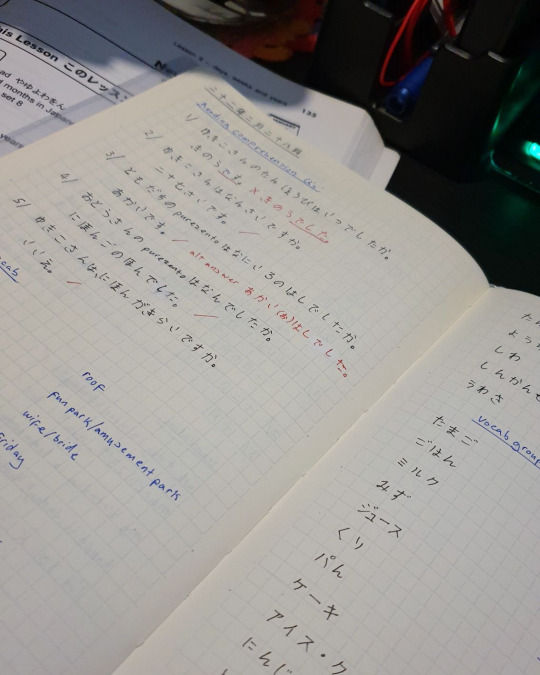 his Lesson このレッス
ad やゆよわをん
d months in Ja
set 8
years
Lesson 8
years
135
二十二年二月二十八日
Reading comprehension Qs
1/ かきこさんのたんじょうびはいつでしたか。
きのうです。 × きのうでした。
2/ かきこさんはなんさいですか。
二十七さいです。
3/ ともだちのpurezentoはなにいろのはしでしたか。
あかいです。 alt answer あかい(の)はしでした。
4/ おとうさんのpurezentoはなんでしたか。
にほんごのほんでした。
5/ かきこさんは、にほんがきらいですか。
いいえ。
vocab
roof
fun park/amusement park
wife/bride
Friday
たん
よう
しわ
しんかんせ
うわさ
vocab group
たまご
ごはん
ミルク
みず
ジュース
くり
パん
ケーキ
アイス・ク
にんじ